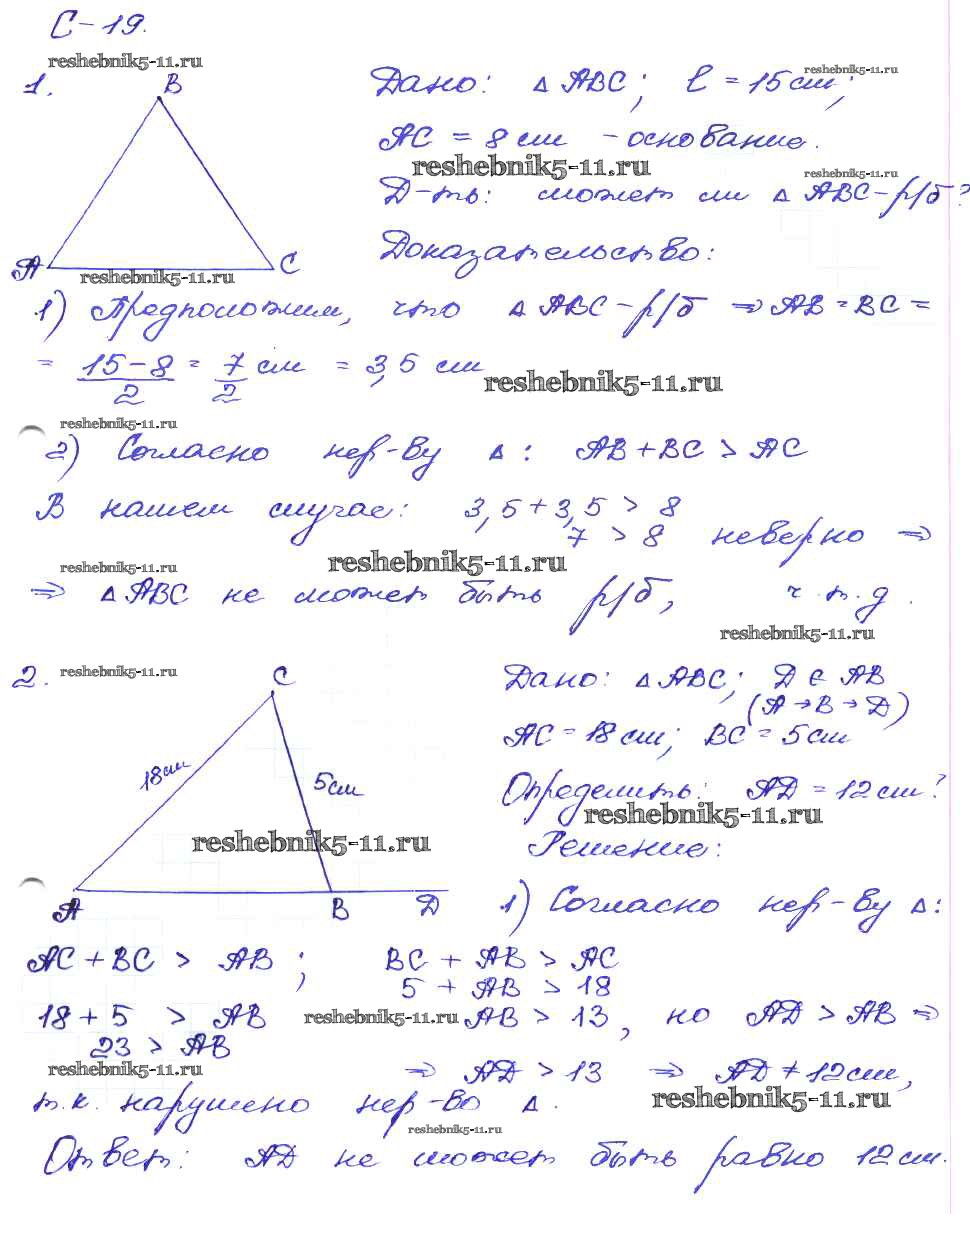 С-19.
reshebnik5-11.ru
1.
B
A
C
reshebnik5-11.ru
Дано: Δ ABC; l = 15 см;
reshebnik5-11.ru
AC = 8 см - основание.
reshebnik5-11.ru
reshebnik5-11.ru
Д-ть: может ли Δ ABC-р/б?
Доказательство:
1) Предположим, что Δ ABC-р/б ⇒ AB = BC =
= (15-8)/2 = 7/2 см = 3,5 см
reshebnik5-11.ru
reshebnik5-11.ru
2) Согласно нер-ву Δ: AB+BC > AC
В нашем случае: 3,5+3,5 > 8
7 > 8 неверно ⇒
reshebnik5-11.ru
reshebnik5-11.ru
⇒ Δ ABC не может быть р/б, ч.т.д.
reshebnik5-11.ru
2.
reshebnik5-11.ru
C
18 см
5 см
reshebnik5-11.ru
A
B
D
Дано: Δ ABC; D ∈ AB
(A→B→D)
AC = 18 см; BC = 5 см
Определить: AD = 12 см?
reshebnik5-11.ru
Решение:
1) Согласно нер-ву Δ:
AC + BC > AB; BC + AB > AC
5 + AB > 18
18 + 5 > AB
reshebnik5-11.ru
AB > 13, но AD > AB ⇒
23 > AB
reshebnik5-11.ru
⇒ AD > 13 ⇒ AD ≠ 12 см,
т.к. нарушено нер-во Δ.
reshebnik5-11.ru
reshebnik5-11.ru
Ответ: AD не может быть равно 12 см.